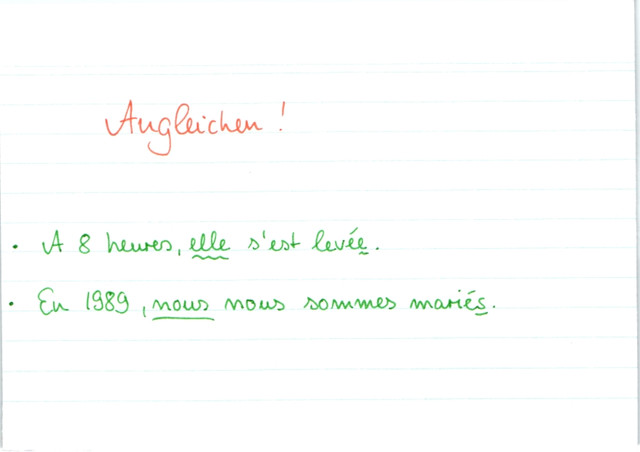 Angleichen!
• A 8 heures, elle s'est levée.
• En 1989, nous nous sommes mariés.